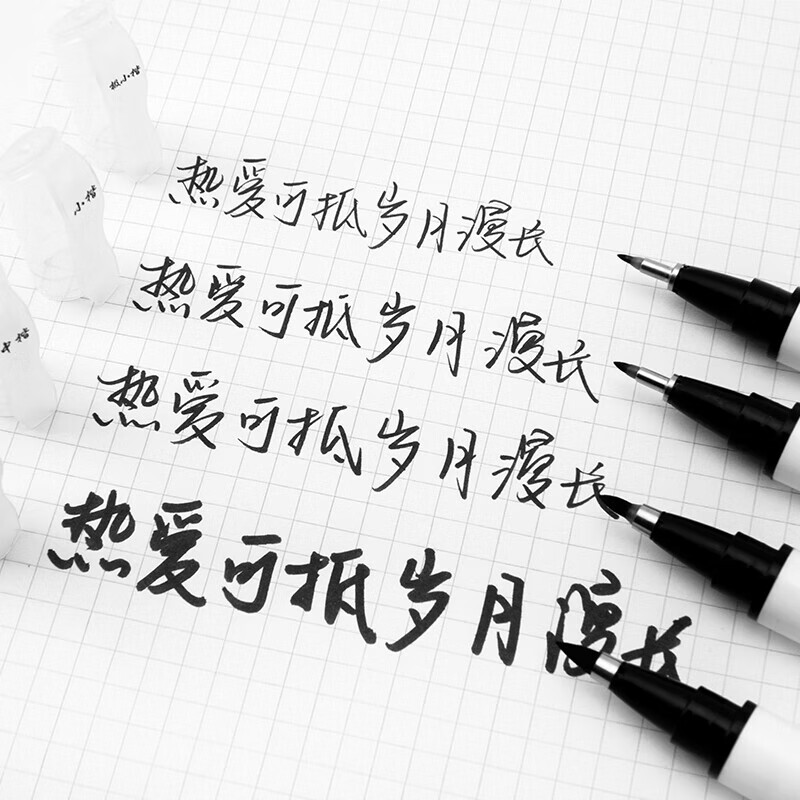 极小楷
热爱可抵岁月漫长
小楷
热爱可抵岁月漫长
中楷
热爱可抵岁月漫长
热爱可抵岁月漫长